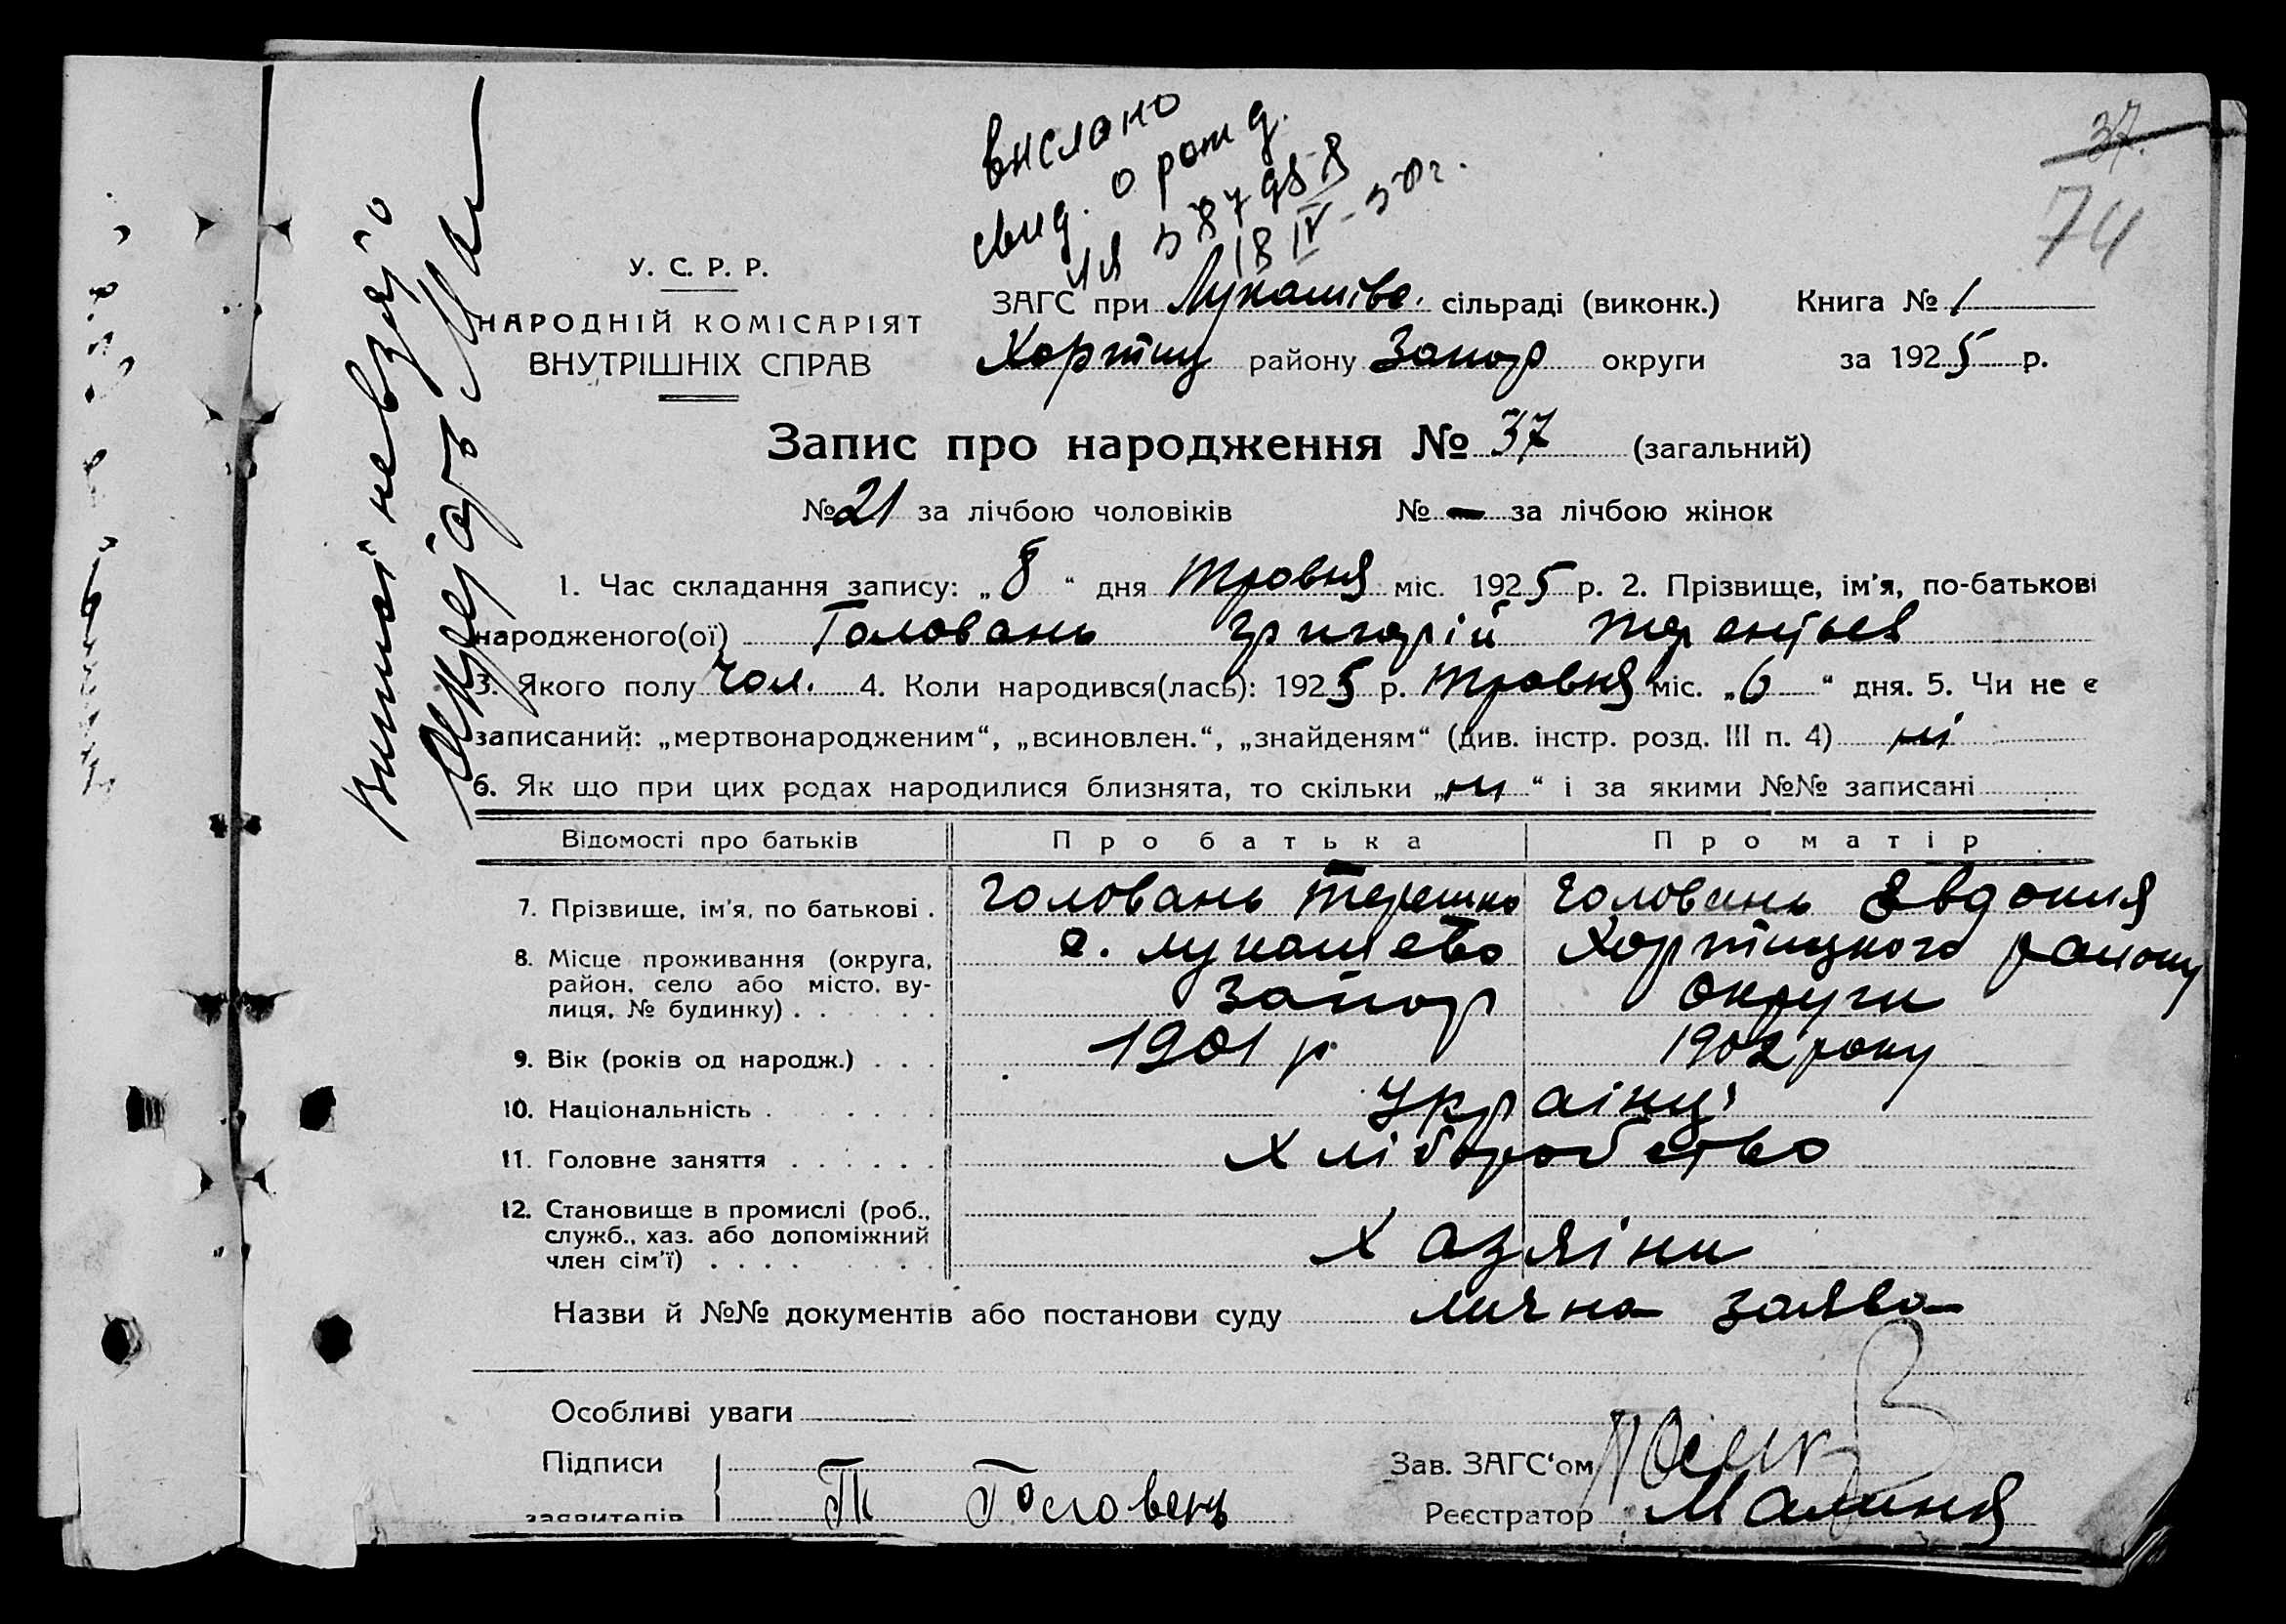 37.
74
вислано
свид. о рожд.
18 IV - 50 г.
У. С. Р. Р.
НАРОДНІЙ КОМІСАРІЯТ
ВНУТРІШНІХ СПРАВ
ЗАГС при Лукашівс. сільраді (виконк.) Книга № 1
Хортиц району Запор округи за 1925 р.
Запис про народження № 37 (загальний)
№ 21 за лічбою чоловіків № — за лічбою жінок
1. Час складання запису: „8“ дня травня міс. 1925 р. 2. Прізвище, ім'я, по-батькові
народженого(ої) Головань Григорій Терентьев
3. Якого полу чол. 4. Коли народився(лась): 1925 р. травня міс. „6“ дня. 5. Чи не є
записаний: „мертвонародженим“, „всиновлен.“, „знайденям“ (див. інстр. розд. III п. 4) ні
6. Як що при цих родах народилися близнята, то скільки „ни“ і за якими №№ записані
Відомості про батьків Про батька Про матір
7. Прізвище, ім'я, по батькові . Головань Терешко Головань Евдокия
8. Місце проживання (округа, с. Лукашево Хортицкого району
район, село або місто, ву-
лиця, № будинку) . . . . . . Запор округи
9. Вік (років од народж.) . . . 1901 р 1902 року
10. Національність . . . . . . Українці
11. Головне заняття . . . . . . Хліборобство
12. Становище в промислі (роб.,
служб., хаз. або допоміжний
член сім'ї) . . . . . . . Хазяїни
Назви й №№ документів або постанови суду лична заява
Особливі уваги
Підписи Зав. ЗАГС'ом
заявителів Т Головень Реєстратор Малиня